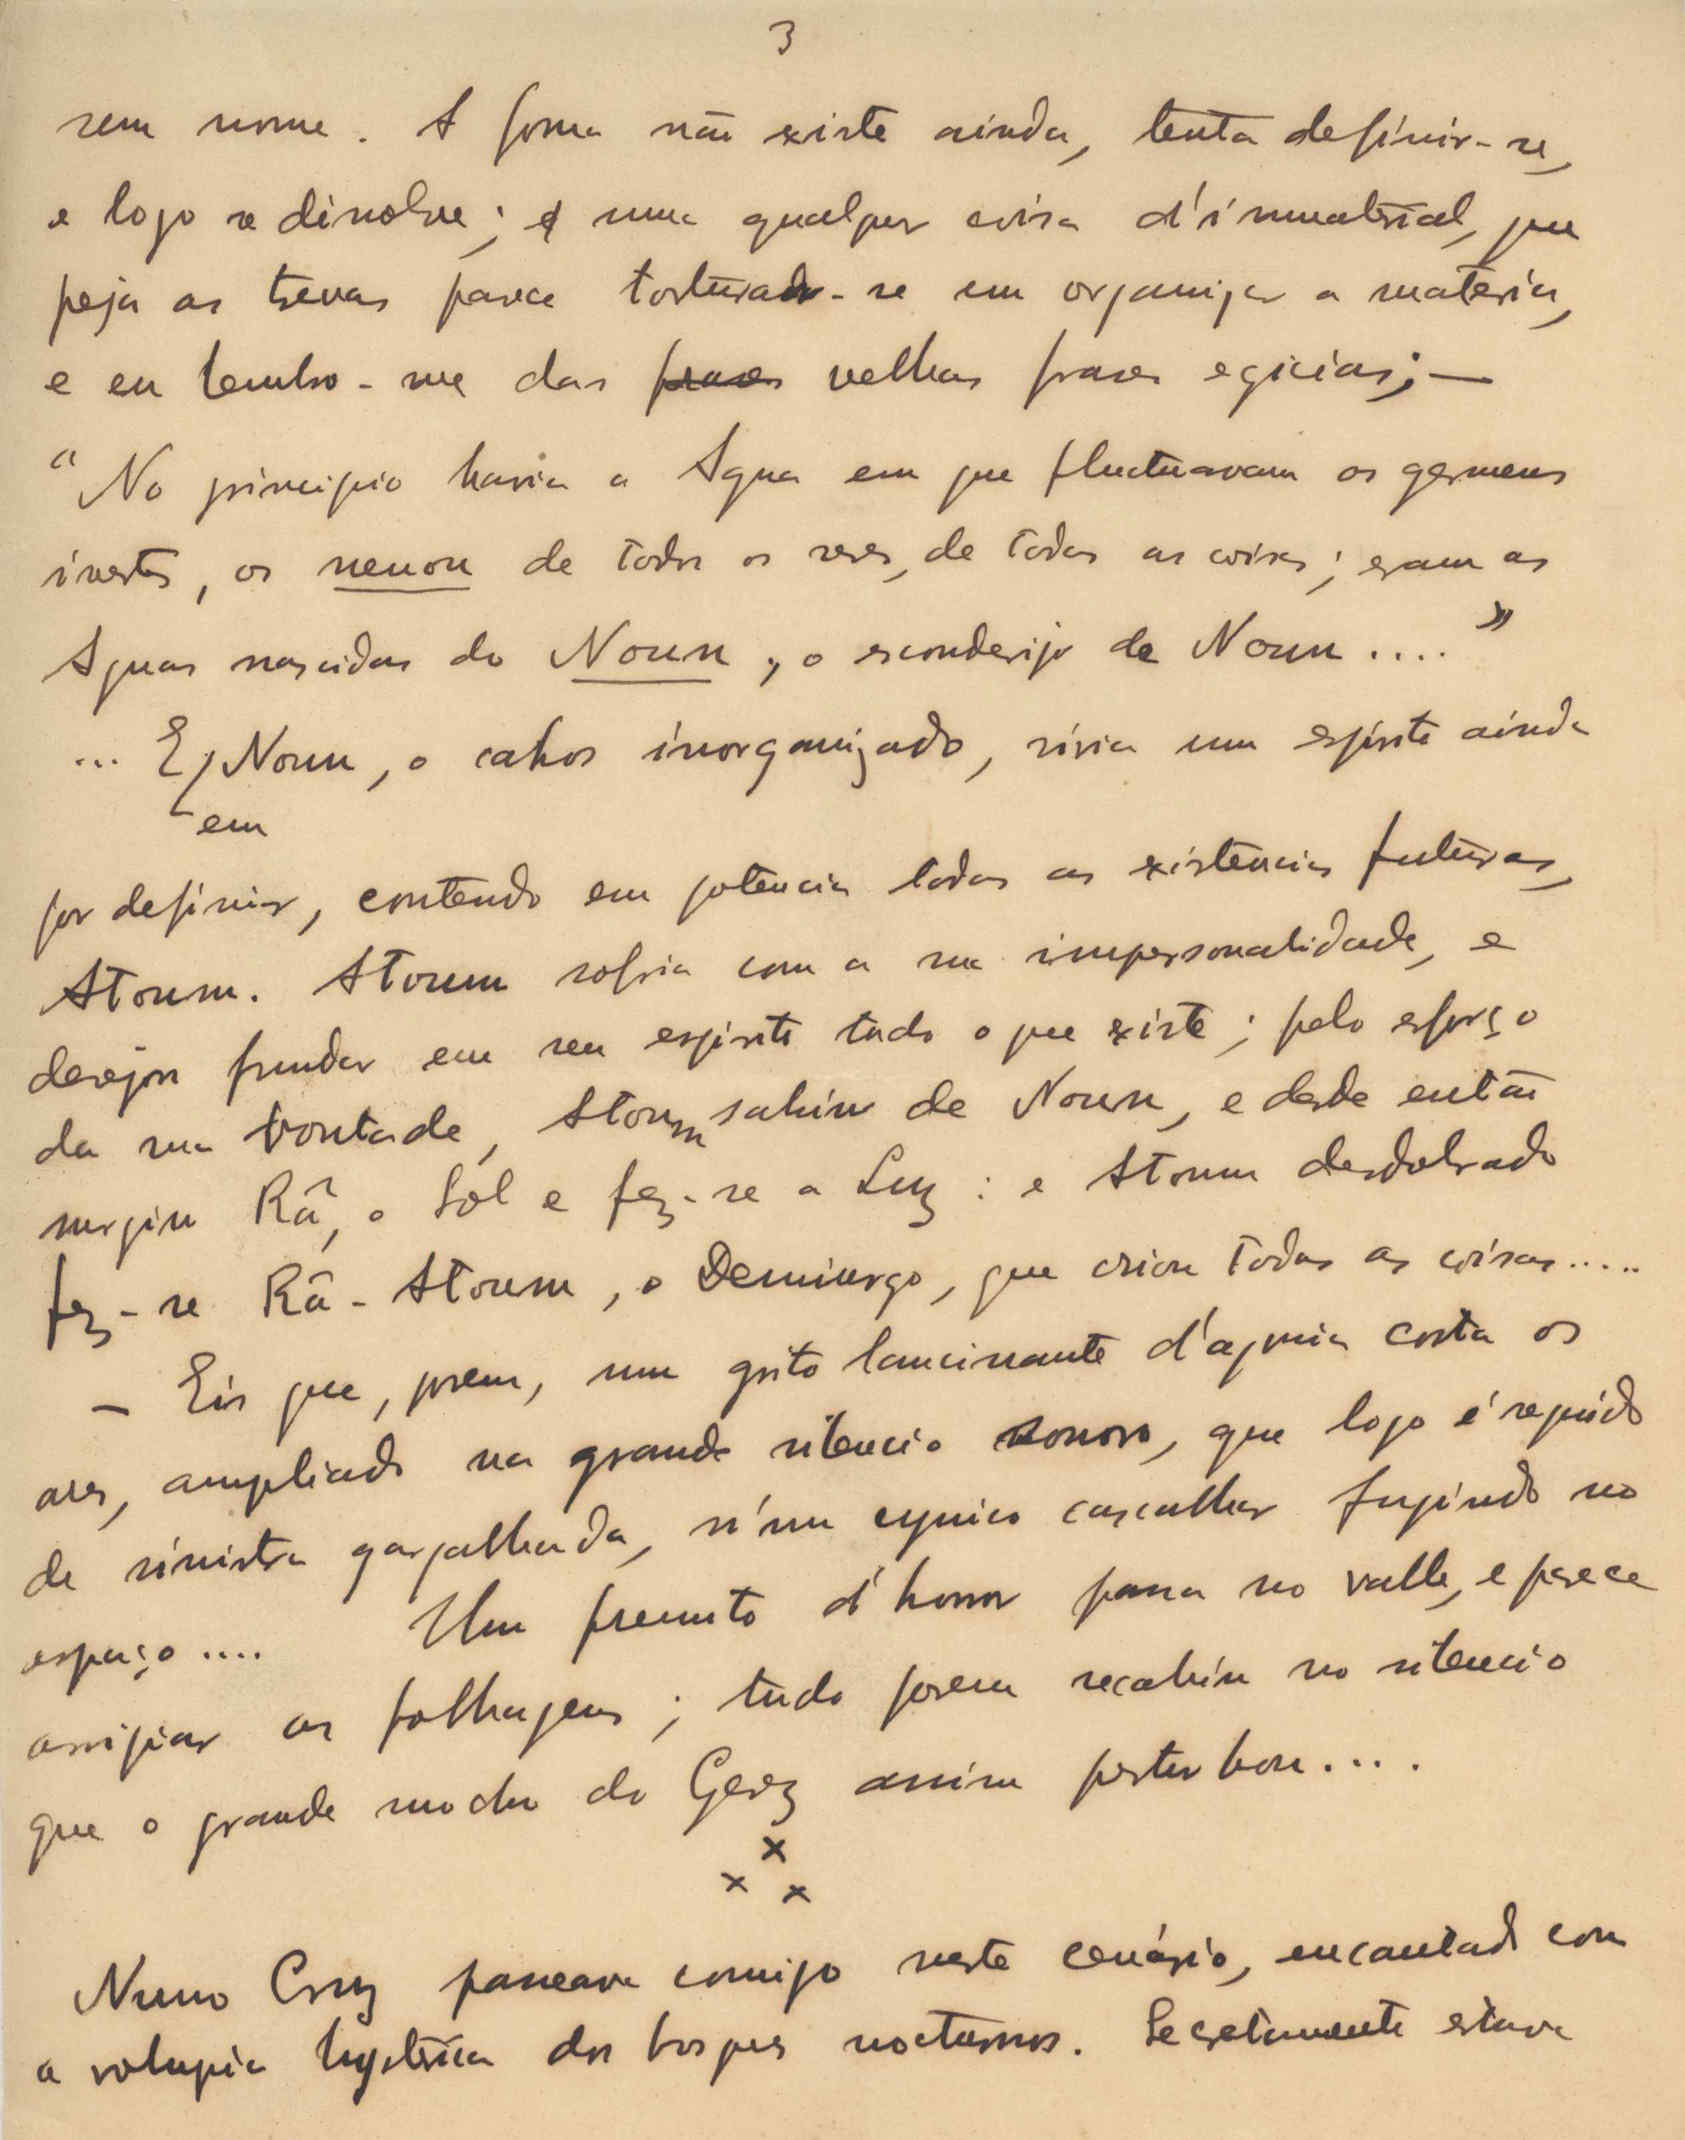 3
sem nome. A forma não existe ainda, tenta definir-se,
e logo se dissolve; e uma qualquer coisa d'immaterial, que
peja as trevas parece torturar-se em organizar a materia,
e eu lembro-me das frases velhas frases egicias; —
"No principio havia a Agua em que fluctuavam os germens
inertes, os nenou de todos os seres, de todas as coisas; eram as
Aguas nascidas do Noun, o esconderijo de Noun...."
... E, Noun, o cahos inorganizado, vivia um espirito ainda
em
por definir, contendo em potencia todas as existencias futuras,
Atoum. Atoum sofria com a sua impersonalidade, e
desejou fundar em seu espirito tudo o que existe; pelo esforço
da sua vontade, Atoum sahiu de Noun, e desde então
surgiu Râ, o Sol e fez-se a Luz: e Atoum desdobrado
fez-se Râ-Atoum, o Demiurgo, que criou todas as coisas.....
— Eis que, porem, um grito lancinante d'agonia corta os
ares, ampliado na grande silencio sonoro, que logo é seguido
de sinistra gargalhada, n'um cynico cascalhar fugindo no
espaço.... Um fremito d'horror passa no valle, e parece
arripiar as folhagens; tudo porem recahiu no silencio
que o grande mocho do Gerez assim perturbou....
x
x x
Nuno Cruz passeava comigo neste cenário, encantado com
a volupia hysterica dos bosques nocturnos. Secretamente estava